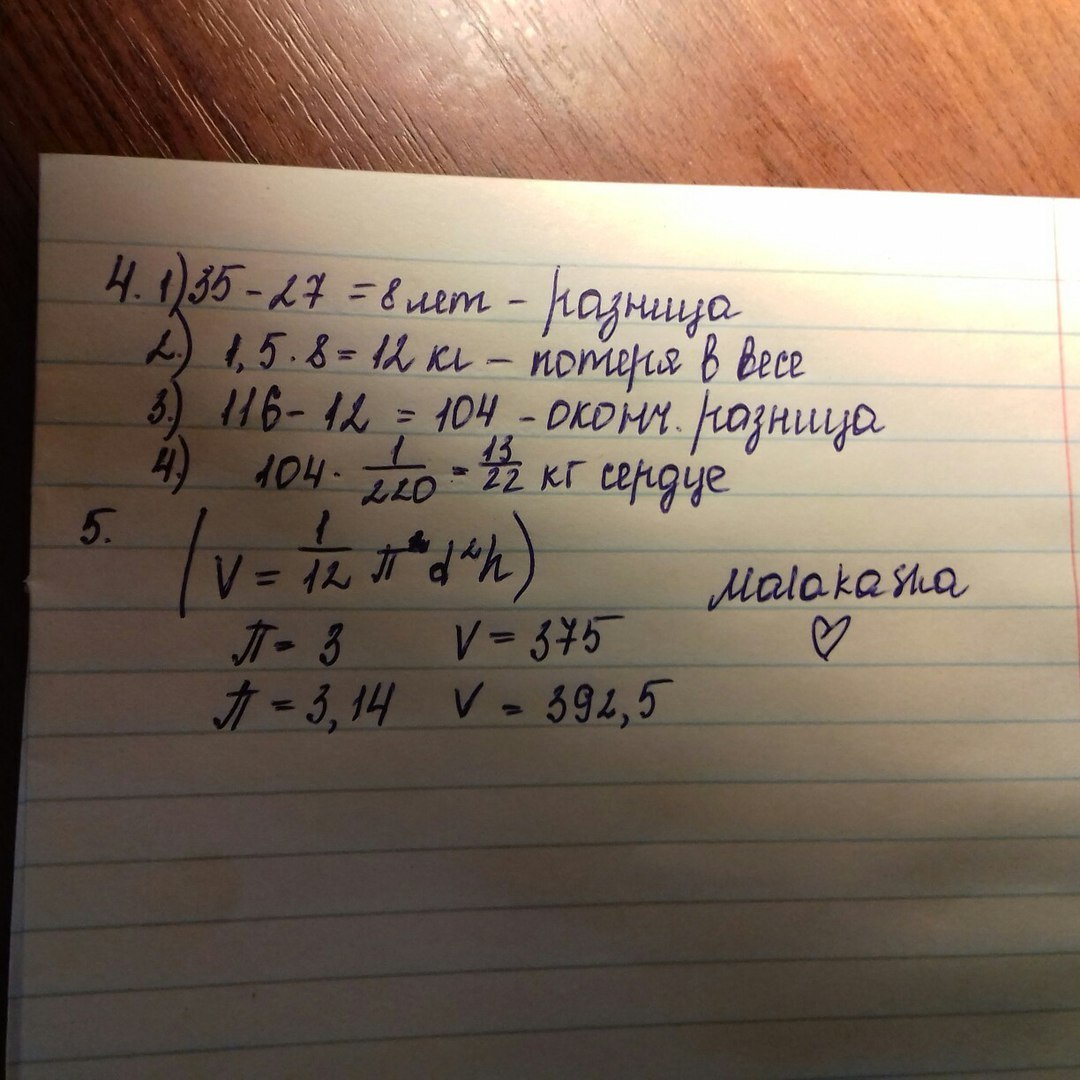 4. 1) 35 - 27 = 8 лет - разница
2.) 1,5 · 8 = 12 кг - потеря в весе
3.) 116 - 12 = 104 - оконч. разница
4) 104 · 1/220 = 13/22 кг сердце
5. (V = 1/12 π d²h)
Malakasha
π = 3 V = 375
♡
π = 3,14 V = 392,5